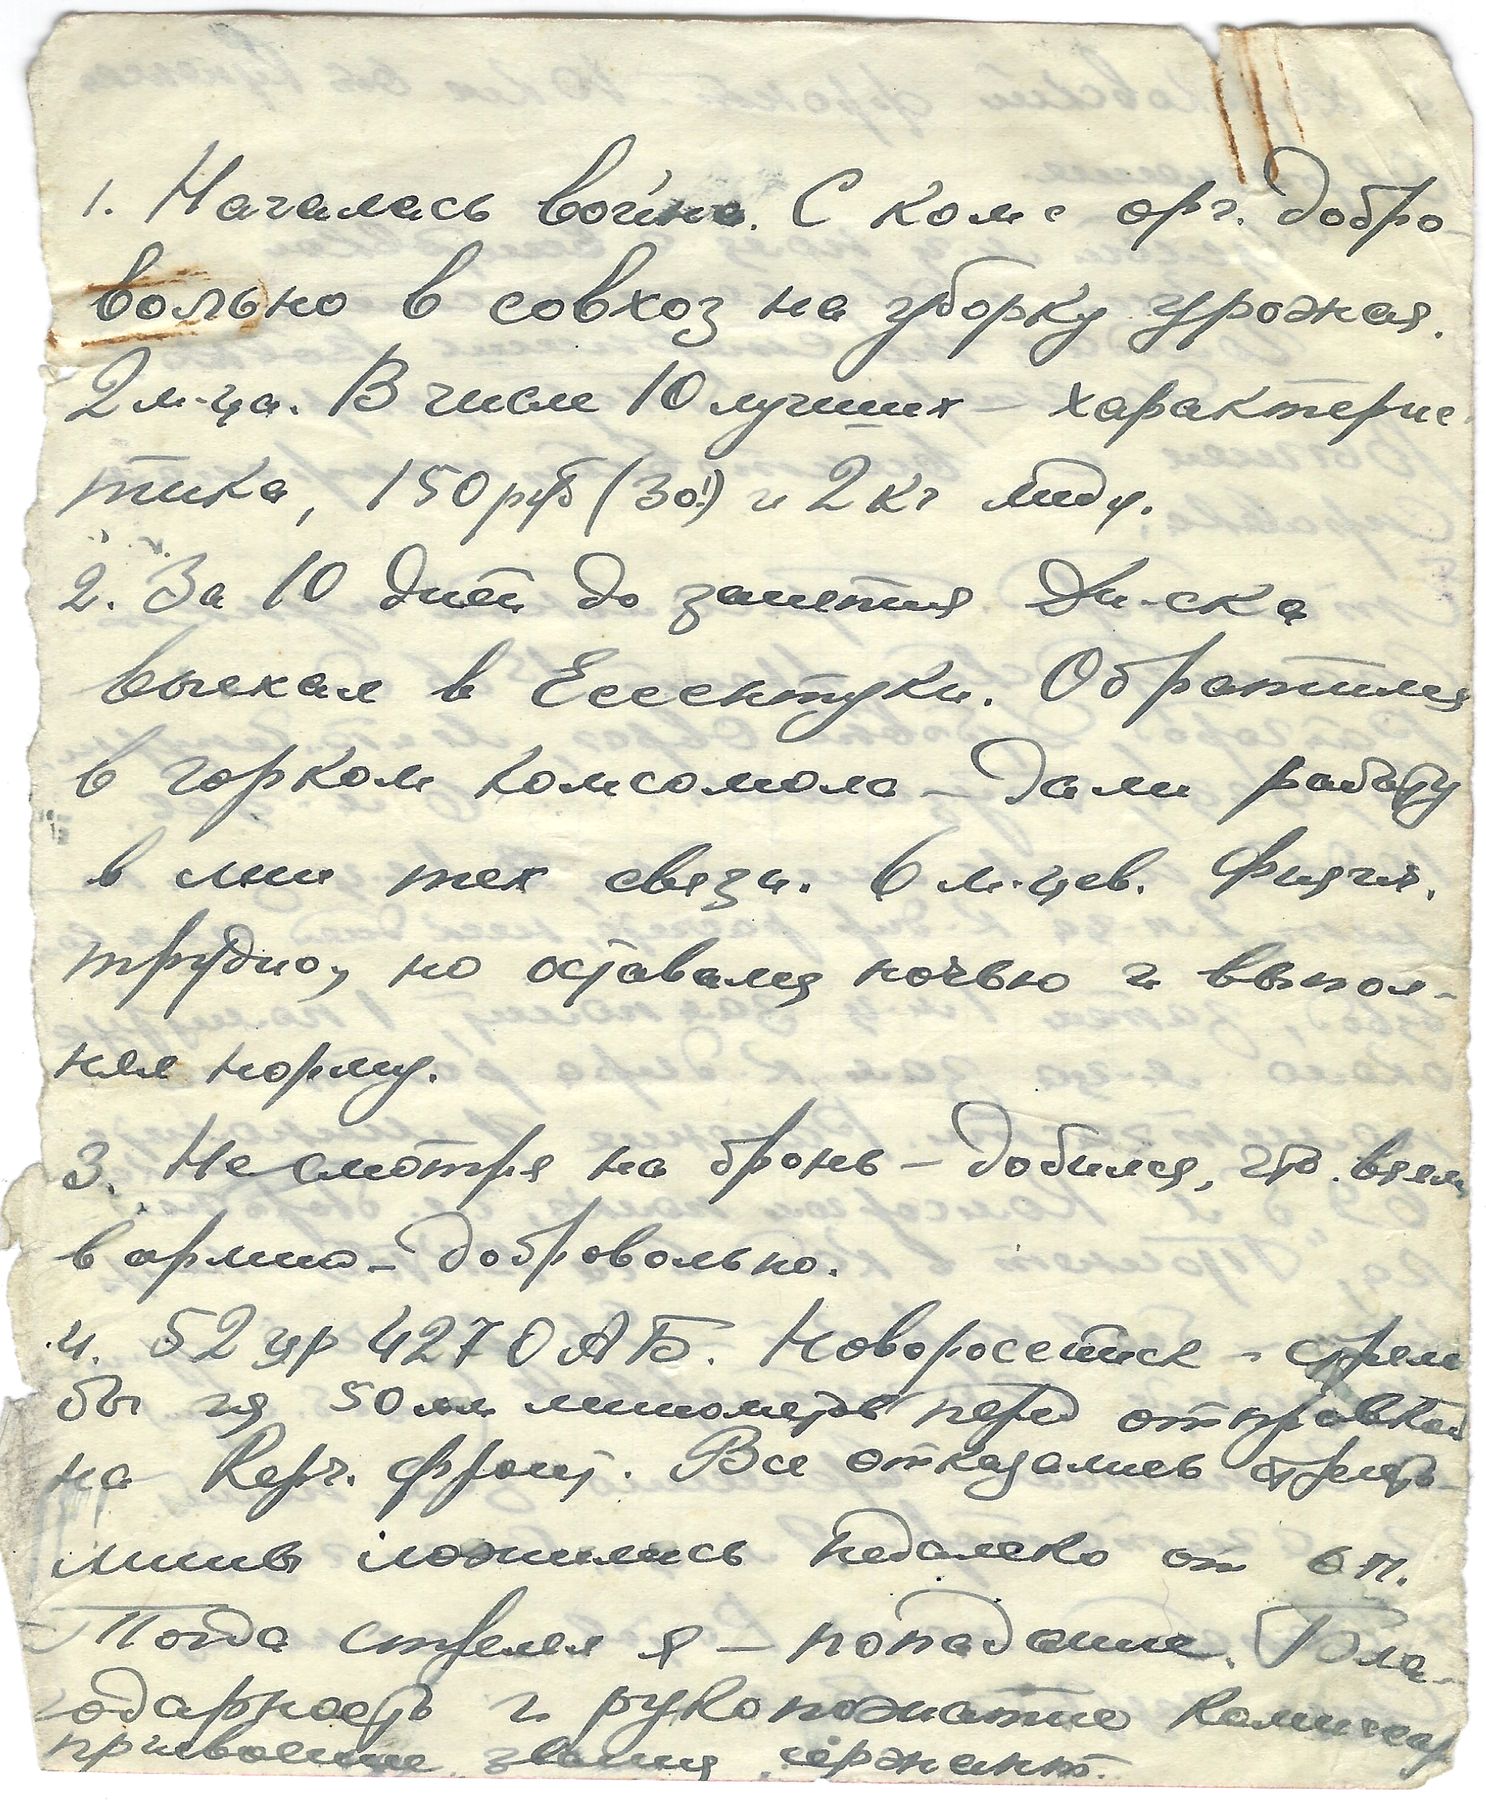 1. Началась война. С комс орг. добро-
вольно в совхоз на уборку урожая.
2 м-ца. В числе 10 лучших – характерис
тика, 150 руб (30!) и 2 кг меду.
2. За 10 дней до занятия Дн-ска
выехал в Ессентуки. Обратился
в горком комсомола – дали работу
в тех связи. 6 м-цев. Физич.
трудно, но оставался ночью и выпол-
нял норму.
3. Несмотря на бронь – добился, чтоб. взяли
в армию – добровольно.
4. 52 4270 АБ. Новоросейск – стрель
бы из 50 мм минометов перед отправкой
на Керч. фронт. Все отказались стрелять –
мины ложились недалеко от о.п.
Тогда стрелял я – попадание. Бла-
годарность и рукопожатие комиссар
присвоение звания сержант.